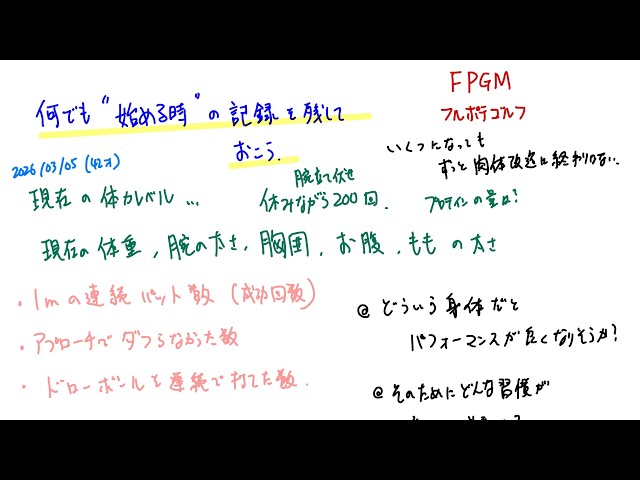 何でも“始める時”の記録を残して
おこう.
FPGM
フルポテゴルフ
いくつになっても
ずっと肉体改造に終わりはない..
2026/03/05 (42才)
現在の体力レベル...
腕立て伏せ
休みながら200回.
プロテインの量は?
現在の体重, 腕の太さ, 胸囲, お腹, ももの太さ
・1mの連続パット数 (成功回数)
・アプローチでダフらなかった数
・ドローボールを連続で打てた数.
@ どういう身体だと
パフォーマンスが良くなりそうか?
@ そのためにどんな習慣が